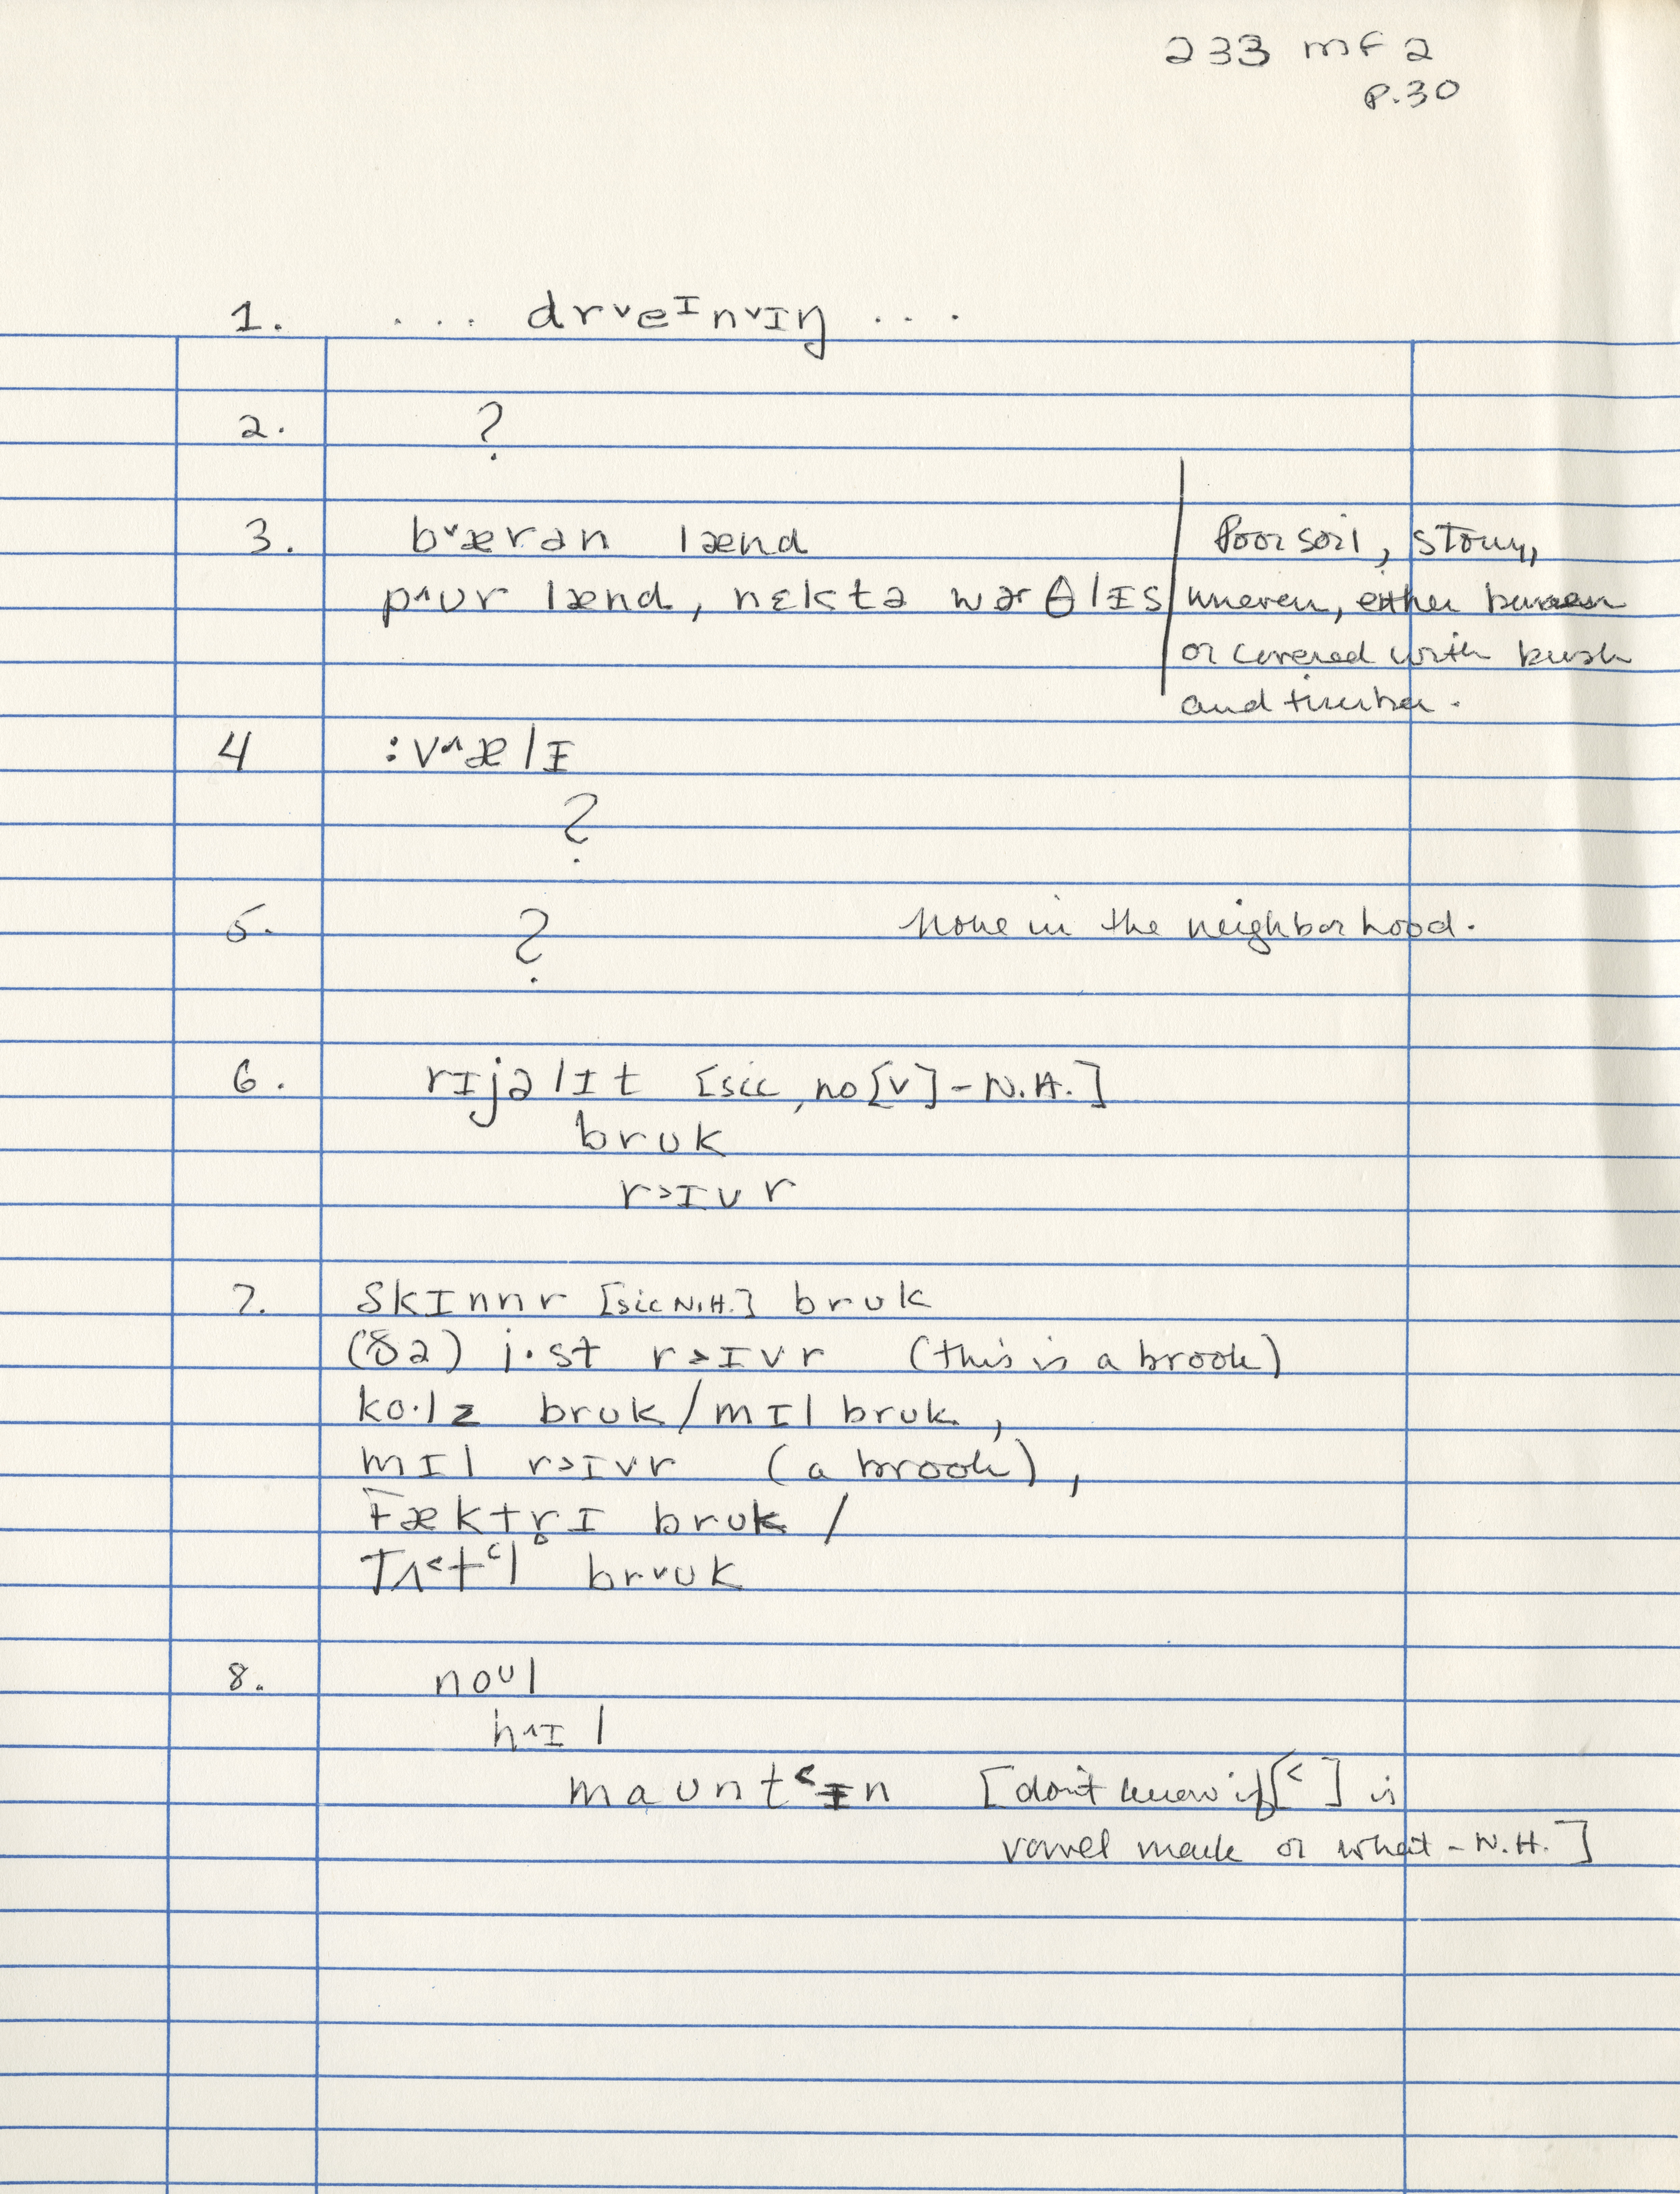 233 MF 2
P.30
1. ... drᵛeᴵnᵛɪŋ ...
2. ?
3. bᵛærən lænd
pˆʊr lænd, nɛkstə wɚθlɪs
Poor soil, stony,
uneven, either barren
or covered with bush
and timber.
4 :vˆælɪ
?
5. ? None in the neighborhood.
6. rɪjəlɪt [sic, no [v] - N.H.]
brʊk
r˃ɪvr
7. skɪnnr [sic N.H.] brʊk
(ðə) i·st r˃ɪvr (this is a brook)
ko·lz brʊk/mɪl brʊk,
mɪl r˃ɪvr (a brook),
fæktr̥ɪ brʊk /
tʌ˂t˂l brᵛʊk
8. noᶷl
hˆɪl
maʊnt˂ɪn [don't know if [˂] is
vowel mark or what - N.H.]